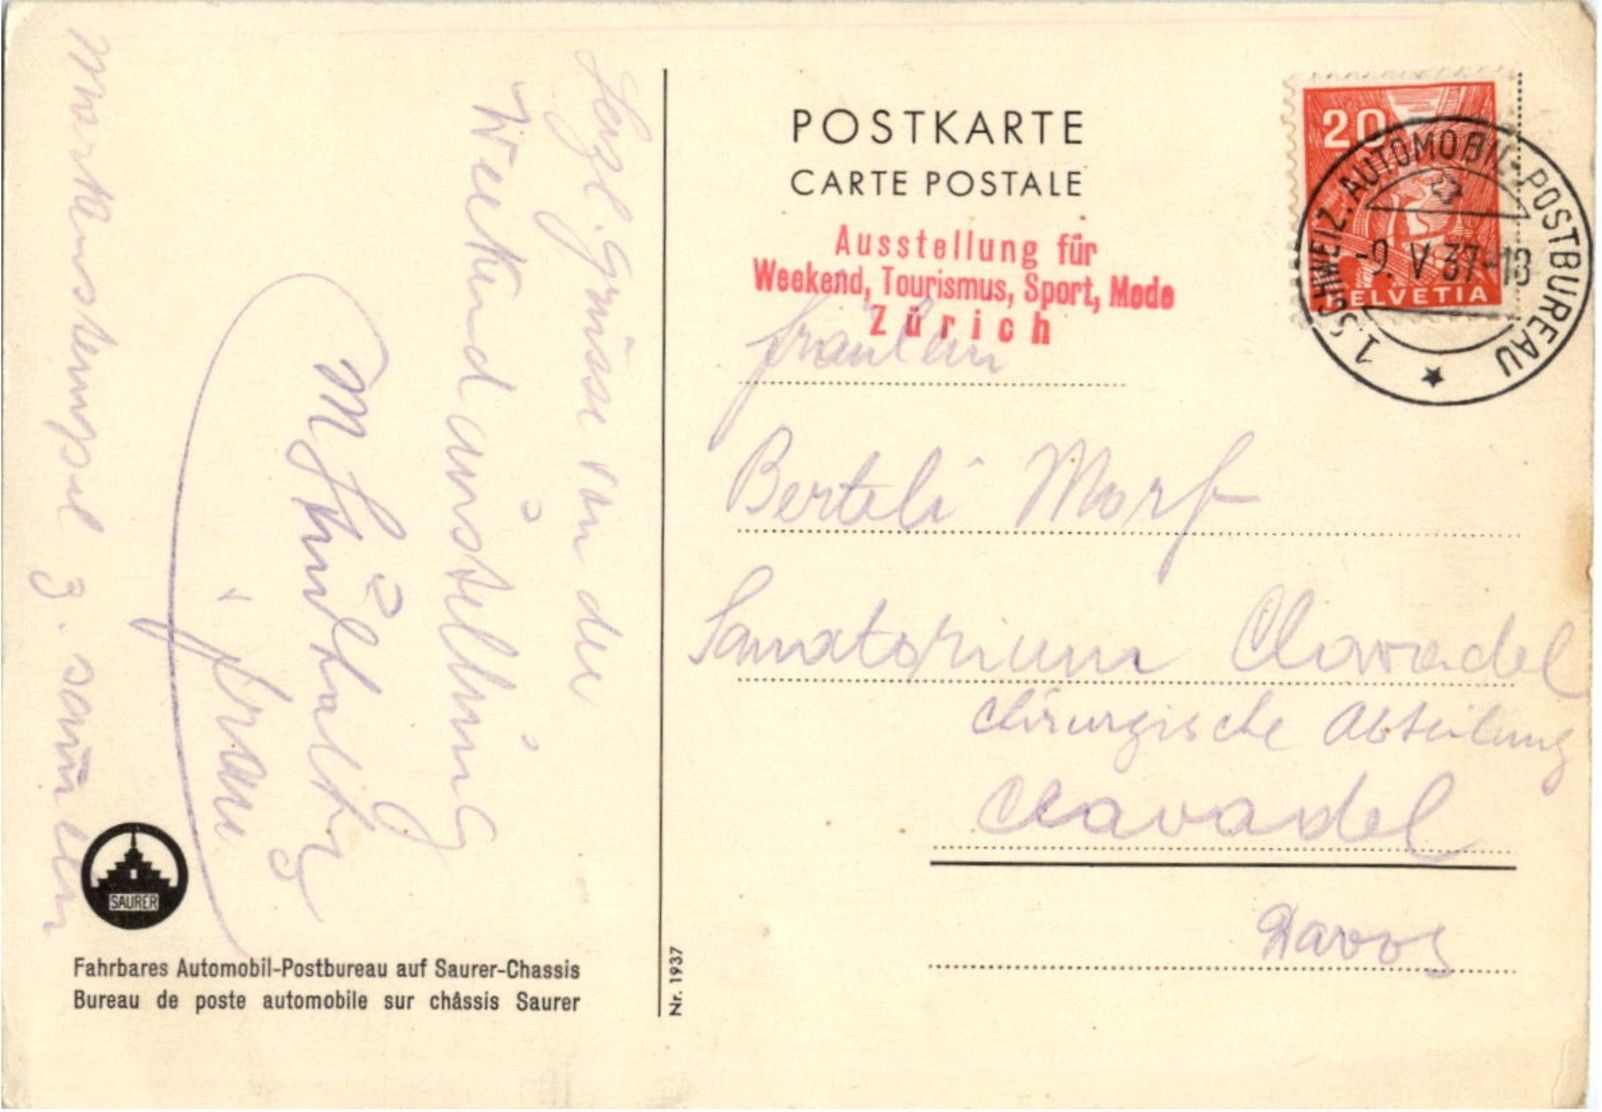 POSTKARTE
CARTE POSTALE
Ausstellung für
Weekend, Tourismus, Sport, Mode
Zürich
20
HELVETIA
1. SCHWEIZ. AUTOMOBIL-POSTBUREAU
-9. V 37-18
Fräulein
Berteli Morf
Sanatorium Clavadel
Chirurgische Abteilung
Clavadel
Davos
grüsse von der
Weekendausstellung
Markenstempel z. sammeln
SAURER
Fahrbares Automobil-Postbureau auf Saurer-Chassis
Bureau de poste automobile sur châssis Saurer
Nr. 1937